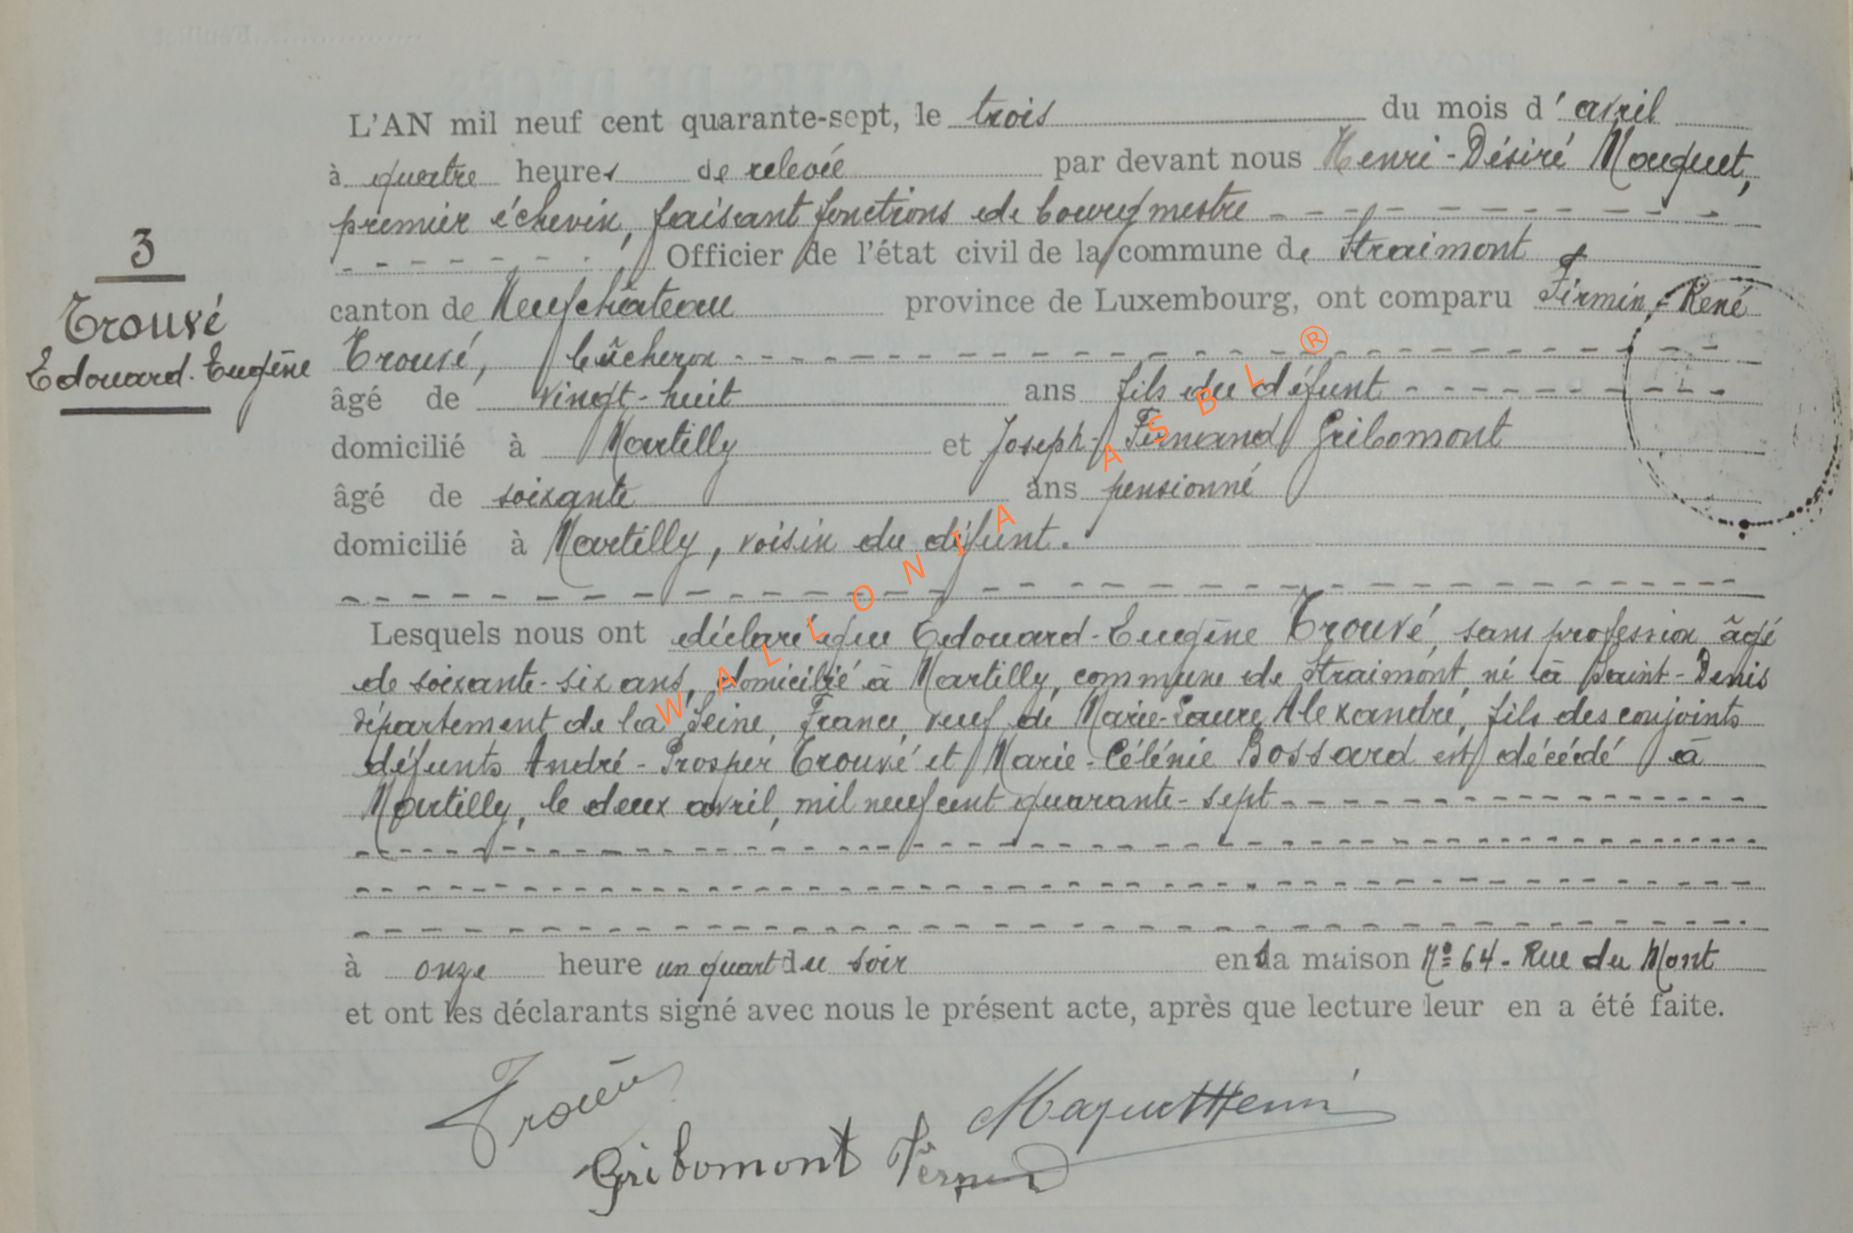 L'AN mil neuf cent quarante-sept, le trois du mois d'avril
à quatre heures de relevée par devant nous Henri-Désiré Maquet,
premier échevin, faisant fonctions de bourgmestre
Officier de l'état civil de la commune de Straimont
3
Trouvé
Edouard-Eugène
canton de Neufchâteau province de Luxembourg, ont comparu Firmin-René
Trouvé, bûcheron
âgé de vingt-huit ans fils du défunt
domicilié à Martilly et Joseph-Fernand Gribomont
âgé de soixante ans pensionné
domicilié à Martilly, voisin du défunt.
Lesquels nous ont déclaré que Edouard-Eugène Trouvé, sans profession âgé
de soixante-six ans, domicilié à Martilly, commune de Straimont, né à Saint-Denis
département de la Seine, France, veuf de Marie-Laure Alexandre, fils des conjoints
défunts André-Prosper Trouvé et Marie-Célénie Bossard est décédé à
Martilly, le deux avril, mil neuf cent quarante-sept
à onze heure un quart du soir en la maison N° 64-Rue du Mont
et ont les déclarants signé avec nous le présent acte, après que lecture leur en a été faite.
Trouvé
Maquet Henri
Gribomont Fernand
WALLONIA ASBL ®